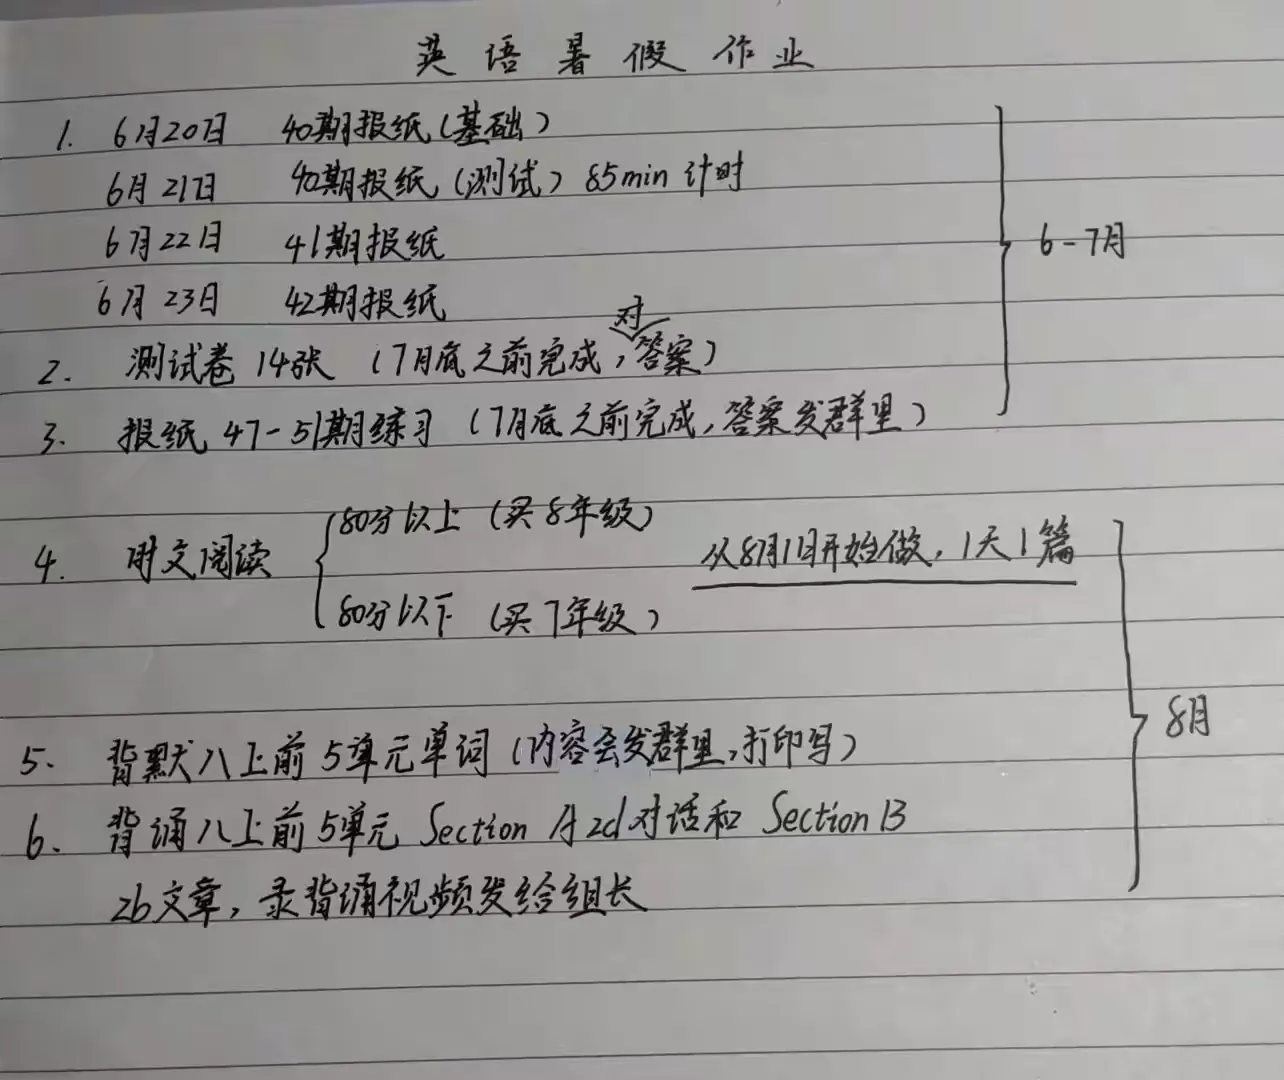 英语暑假作业
1. 6月20日 40期报纸(基础)
6月21日 40期报纸(测试) 85min 计时
6月22日 41期报纸
6月23日 42期报纸
6-7月
2. 测试卷 14张 (7月底之前完成,对答案)
3. 报纸 47-51期练习 (7月底之前完成,答案发群里)
4. 时文阅读
80分以上 (买8年级)
80分以下 (买7年级)
从8月1日开始做,1天1篇
8月
5. 背默八上前5单元单词(内容会发群里,打印写)
6. 背诵八上前5单元 Section A 2d 对话和 Section B
2b文章,录背诵视频发给组长